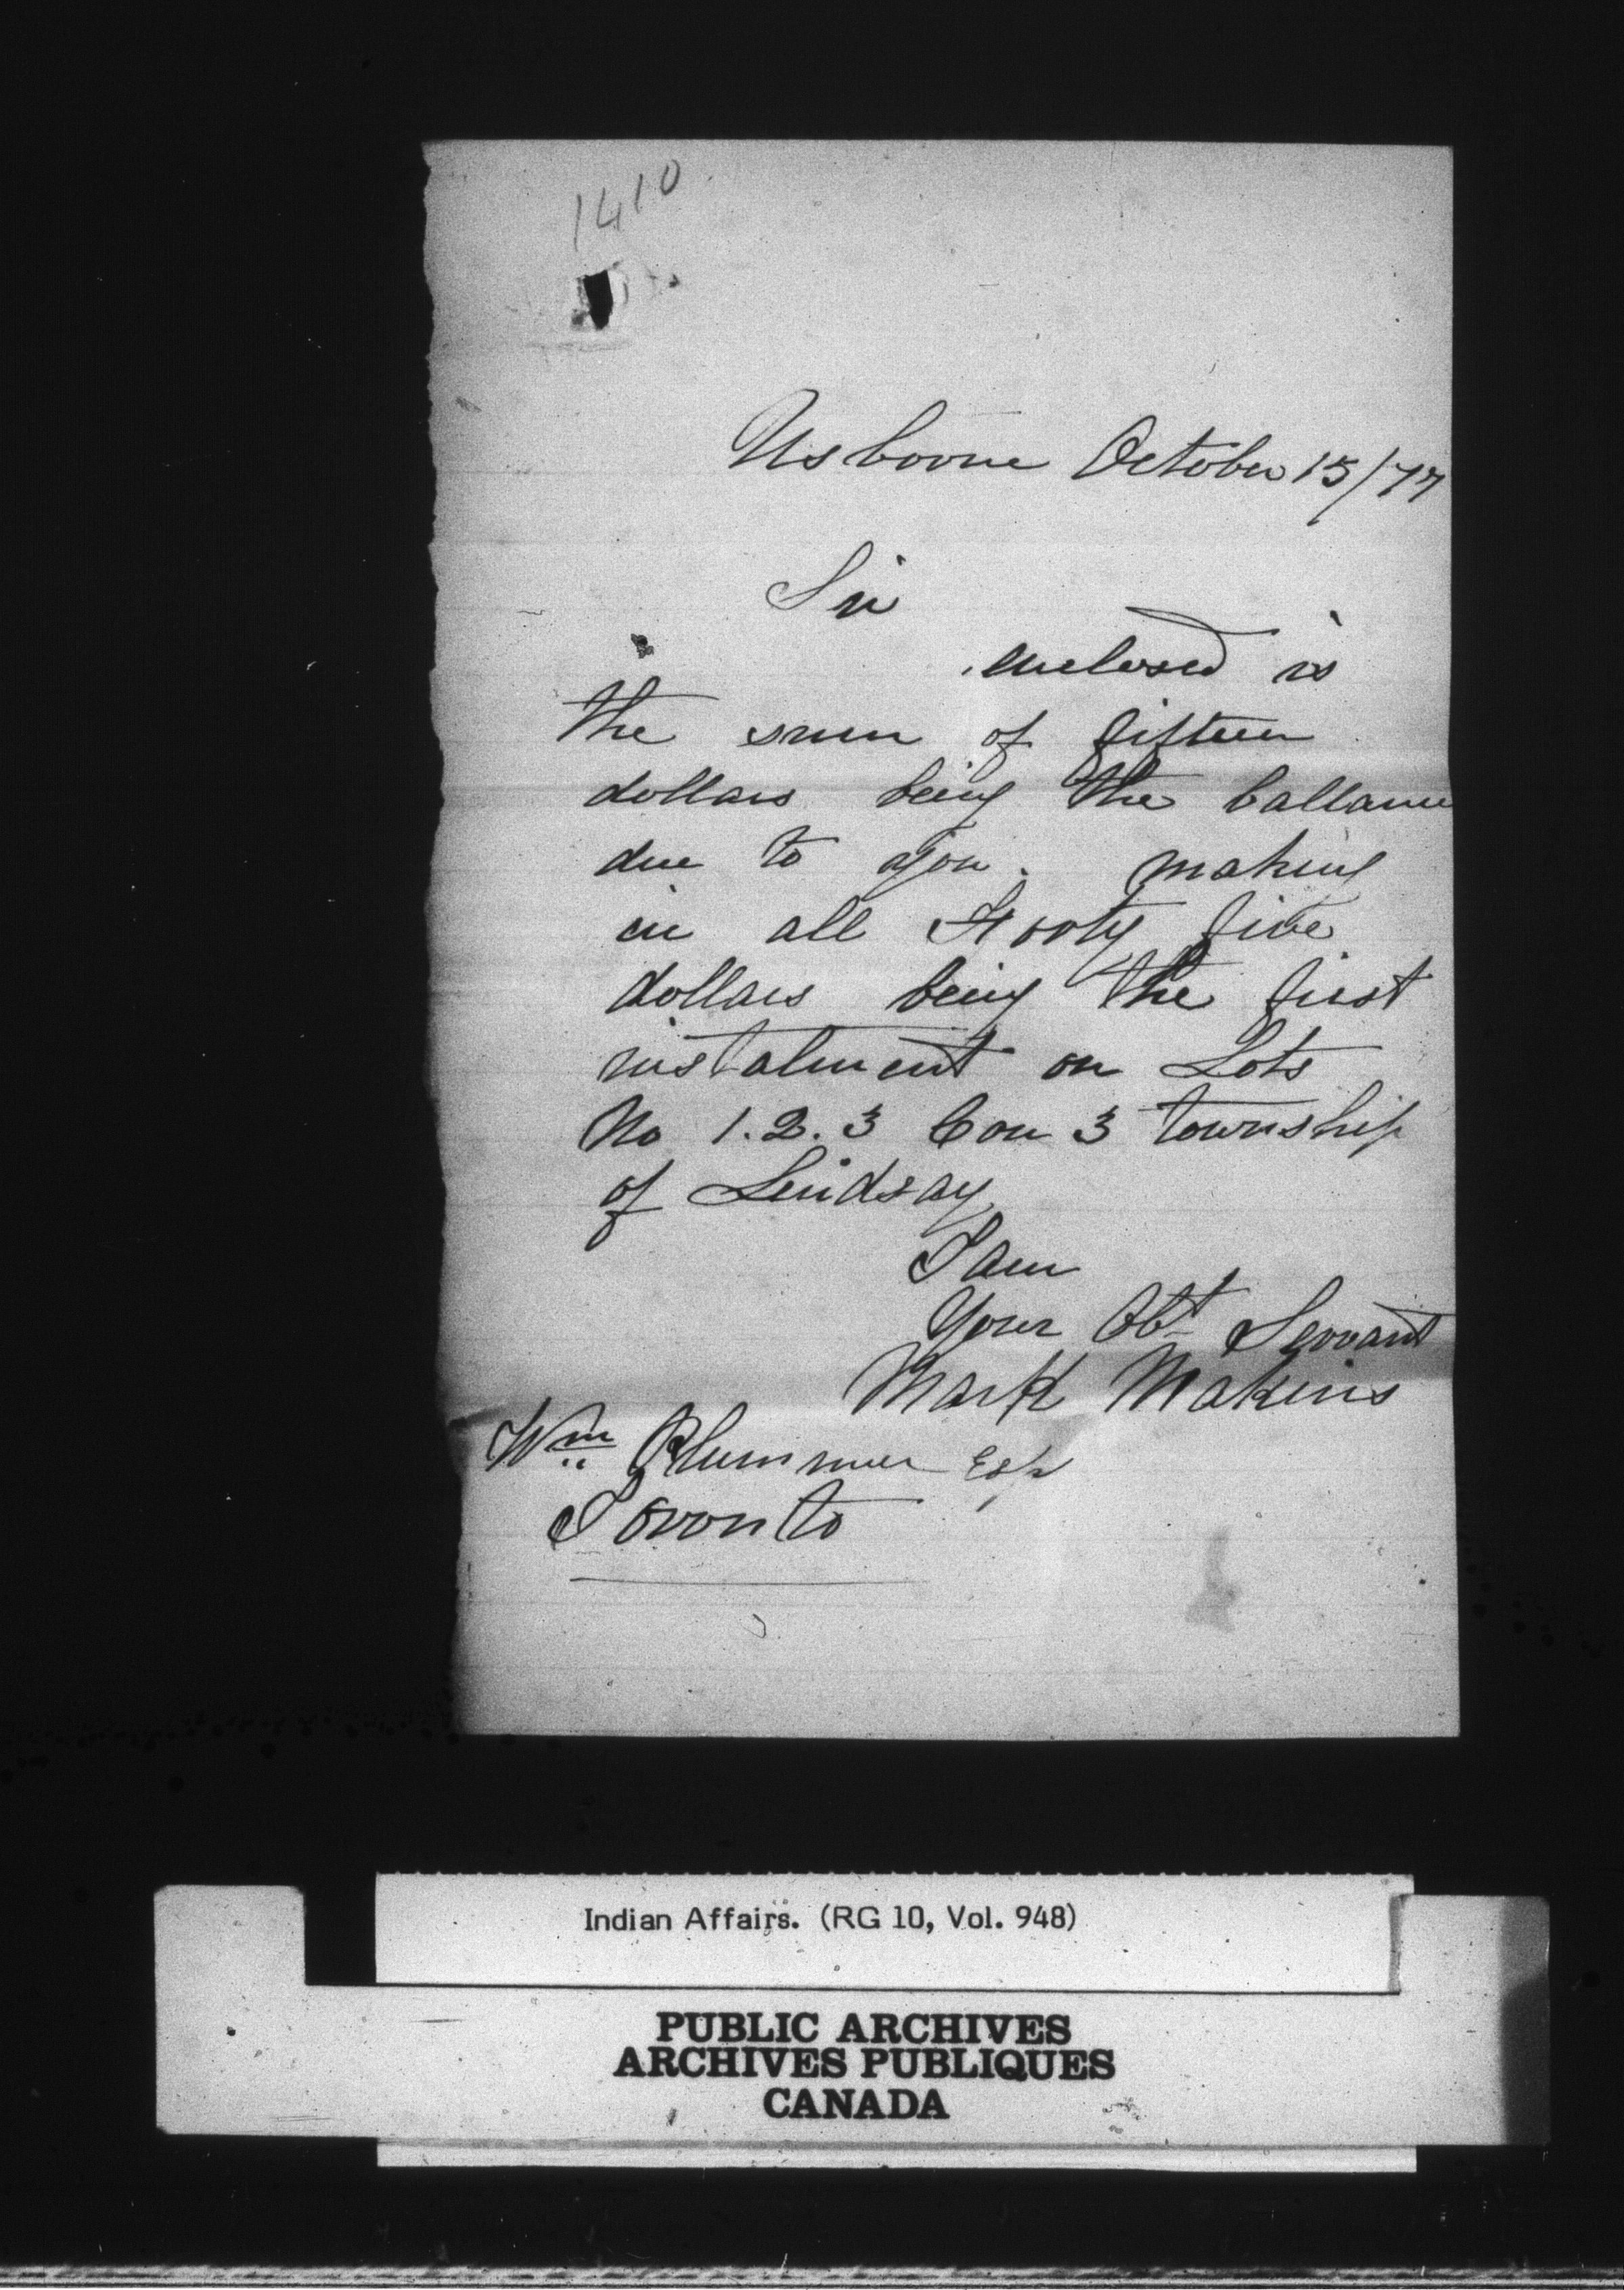 1410
Usborne October 15/77
Sir
enclosed is
the sum of fifteen
dollars being the ballance
due to you. making
in all Foorty five
dollars being the first
instalment on Lots
No 1.2.3 Con 3 township
of Lindsay
I am
Your Obt Servant
Mark Makins
Wm Plummer Esqr
Toronto
Indian Affairs. (RG 10, Vol. 948)
PUBLIC ARCHIVES
ARCHIVES PUBLIQUES
CANADA